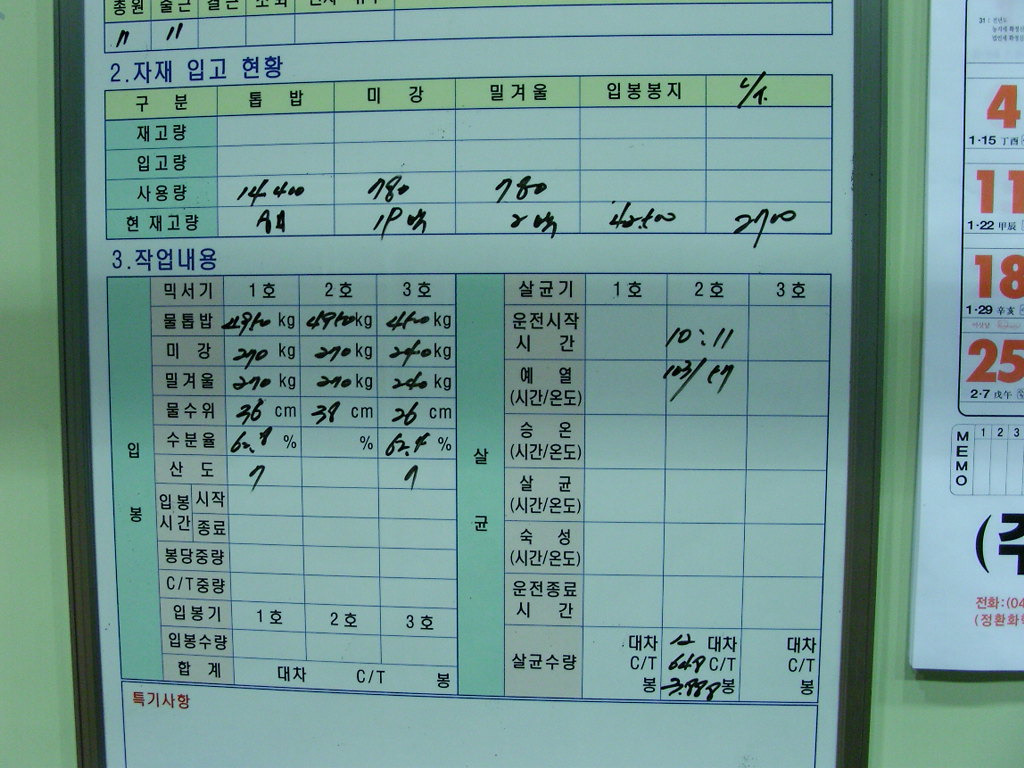 종원 출근 결근
11 11
2.자재 입고 현황
구 분 톱 밥 미 강 밀겨울 입봉봉지
재고량
입고량
사용량 14.400 780 780
현 재고량 2700
3.작업내용
믹서기 1호 2호 3호
물톱밥 kg kg kg
미 강 270 kg 270 kg 240 kg
밀겨울 270 kg 270 kg 240 kg
물수위 36 cm 39 cm 26 cm
수분율 % % %
산 도 7 7
입봉시간 시작
종료
봉당중량
C/T중량
입봉기 1호 2호 3호
입봉수량
합 계 대차 C/T 봉
입봉
살균
살균기 1호 2호 3호
운전시작
시 간 10:11
예 열
(시간/온도)
승 온
(시간/온도)
살 균
(시간/온도)
숙 성
(시간/온도)
운전종료
시 간
살균수량
대차 12 대차 대차
C/T 648 C/T C/T
봉 3.888 봉 봉
특기사항
4
1·15 丁酉
11
1·22 甲辰
18
1·29 辛亥
25
2·7 戊午
MEMO
1 2 3
(주
전화:(04
(정환화